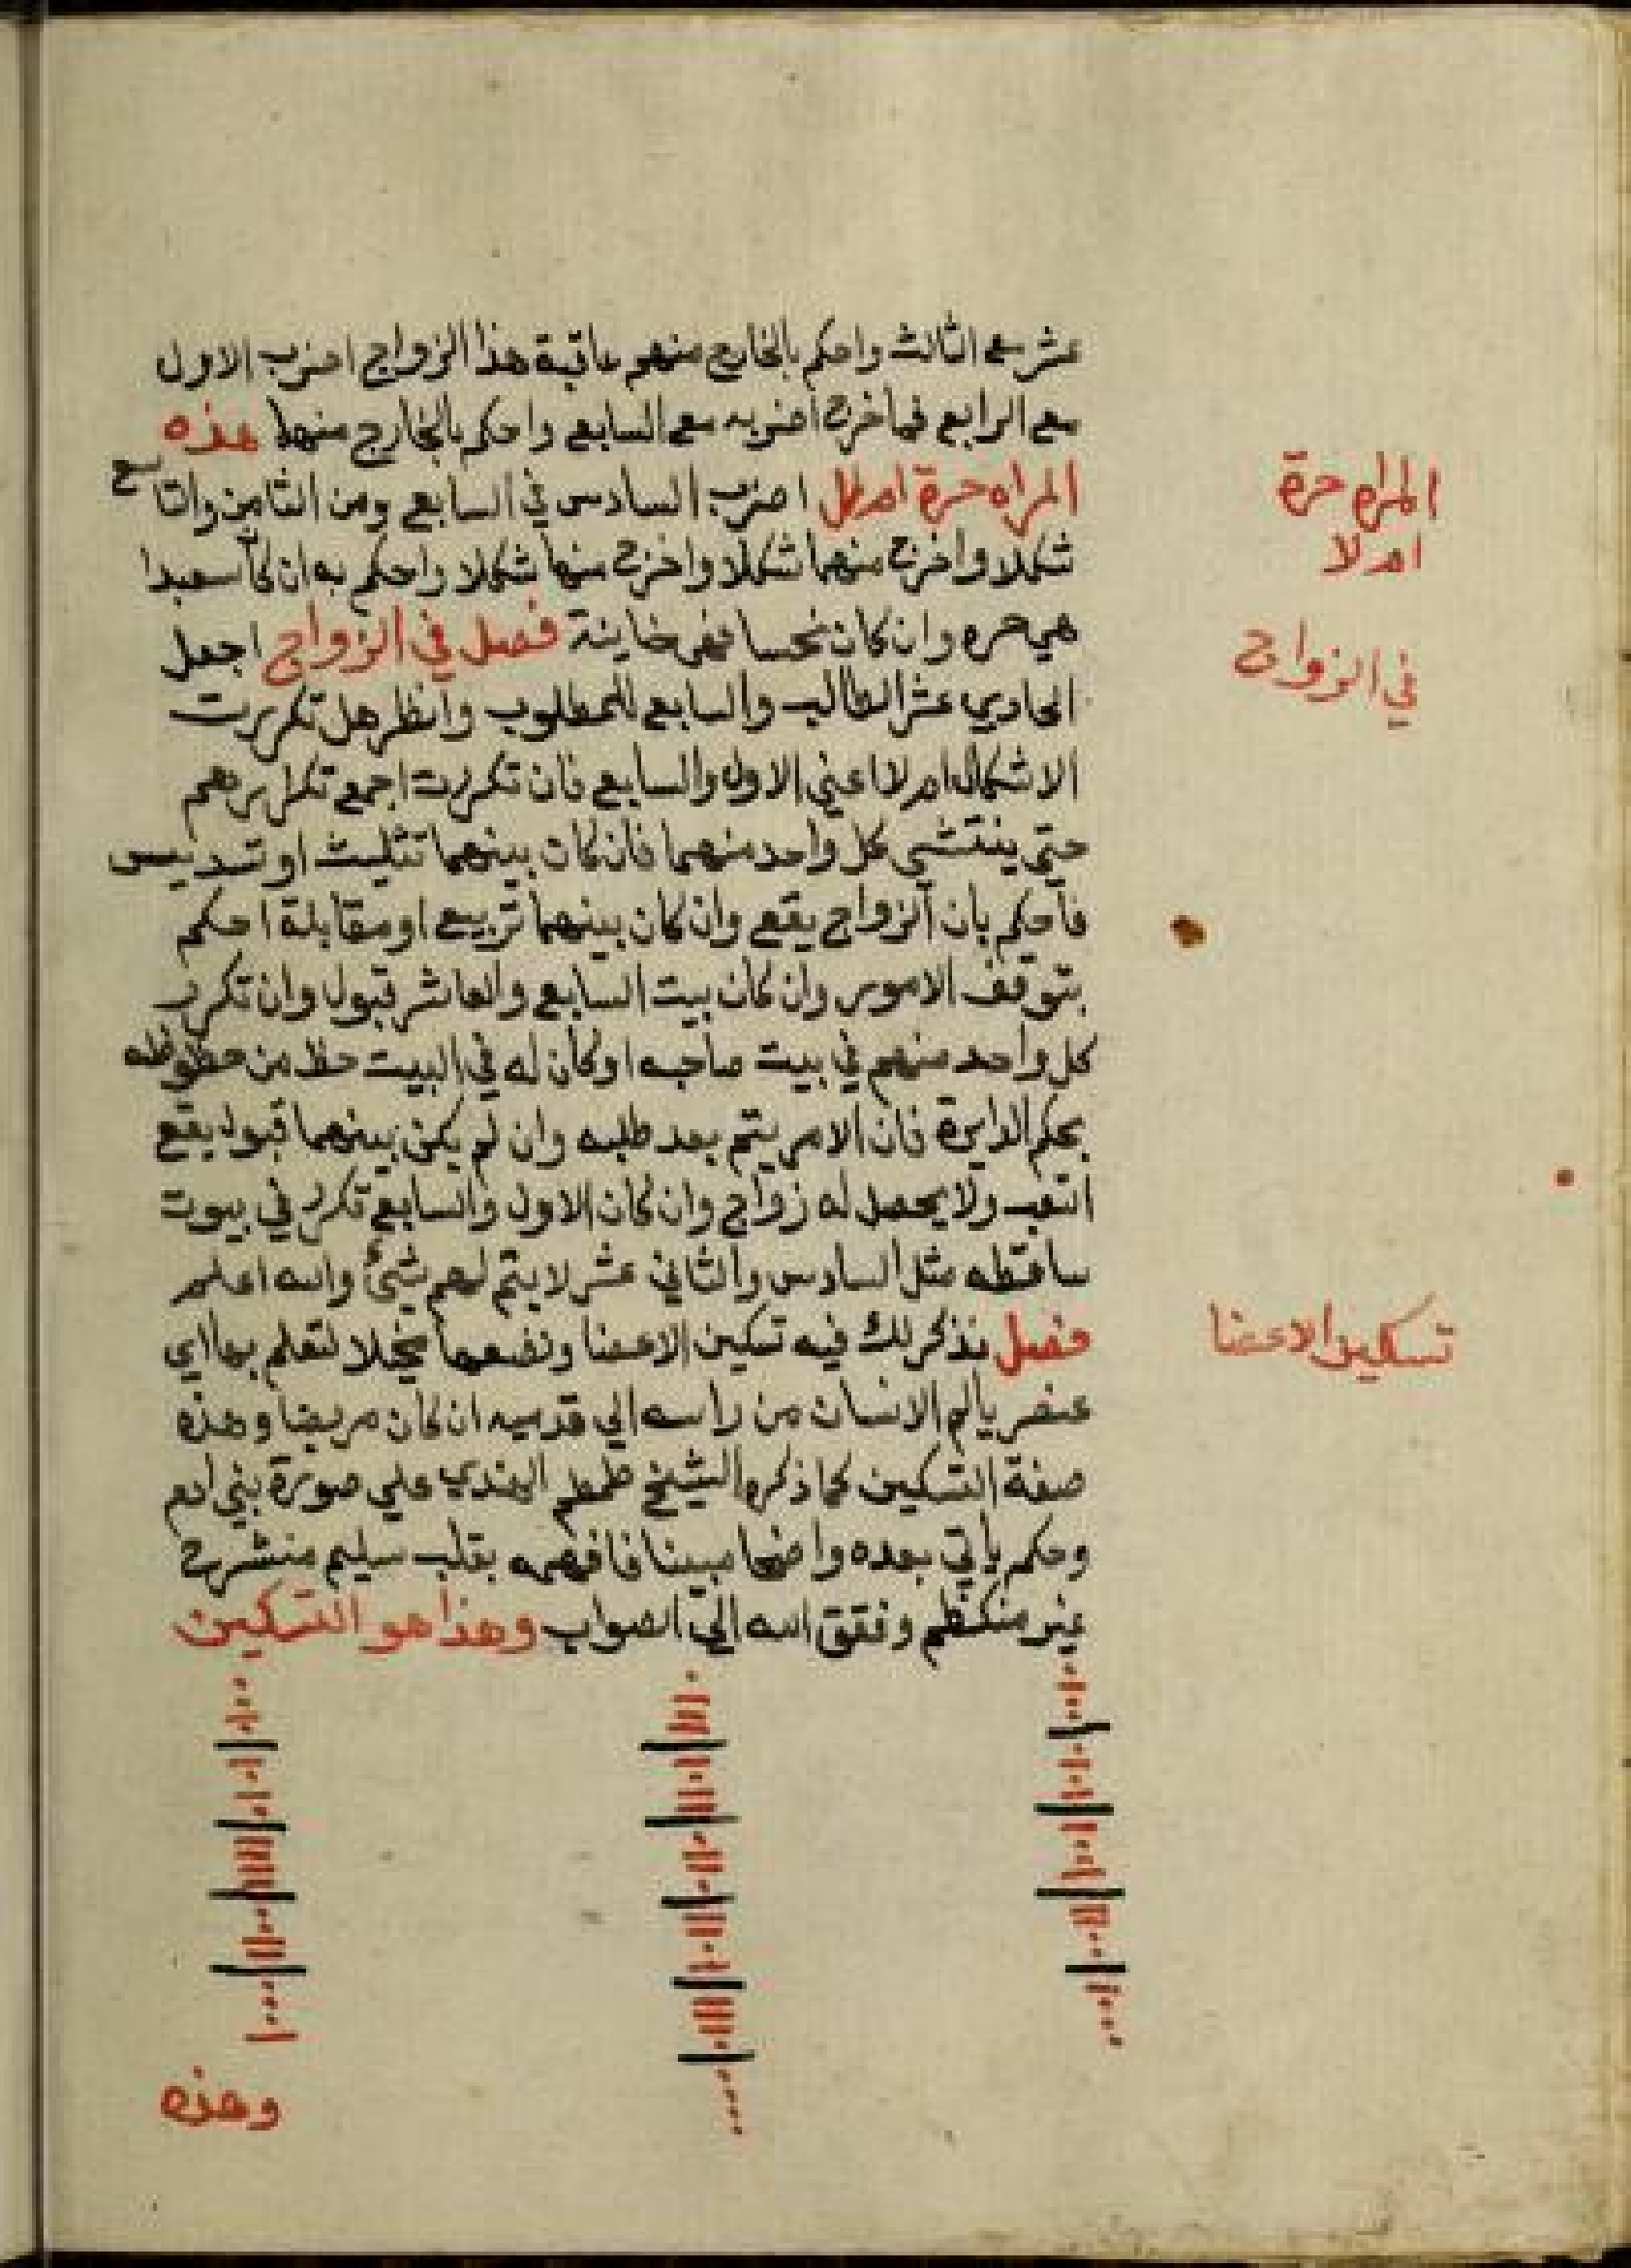 عشر مع الثالث واحكم بالخارج منهم عاقبة هذا الزواج اضرب الاول
مع الرابع فما خرج اضربه مع السابع واحكم بالخارج منهما هذه
المراه حرة ام لا اضرب السادس في السابع ومن الثامن والتاسع
المراه حرة
ام لا
شكلا واخرج منهما شكلا واخرج منها شكلا واحكم به ان كان سعيدا
هي حره وان كان نحسا فهى خاينة فصل في الزواج اجعل
في الزواج
الحادي عشر الطالب والسابع للمطلوب وانظر هل تكررت
الاشكال ام لا اعني الاول والسابع فان تكررت اجمع تكرارهم
حتي ينتشي كل واحد منهما فان كان بينهما تثليث او تسديس
فاحكم بان الزواج يقع وان كان بينهما تربيع او مقابلة احكم
بتوقف الامور وان كان بيت السابع والعاشر قبول وان تكرر
كل واحد منهم في بيت صاحبه او كان له في البيت حظ من حظوظه
بحكم الدايرة فان الامر يتم بعد طلبه وان لم يكن بينهما قبول يقع
التعب ولا يحصل له زواج وان كان الاول والسابع تكرر في بيوت
ساقطه مثل السادس والثاني عشر لا يتم لهم شئ والله اعلم
فصل نذكر لك فيه تسكين الاعضا ونضعها لتعلم بها اي
تسكين الاعضا
عضو يالم الانسان من راسه الي قدميه ان كان مريضا وهذه
صفة التسكين كما ذكره الشيخ طمطم الهندي علي صورة بني ادم
وحكم ياتي بعده واضحا مبينا فافهمه بقلب سليم منشرح
غير منكظم وفقق الله الي الصواب وهذا هو التسكين
وهذه